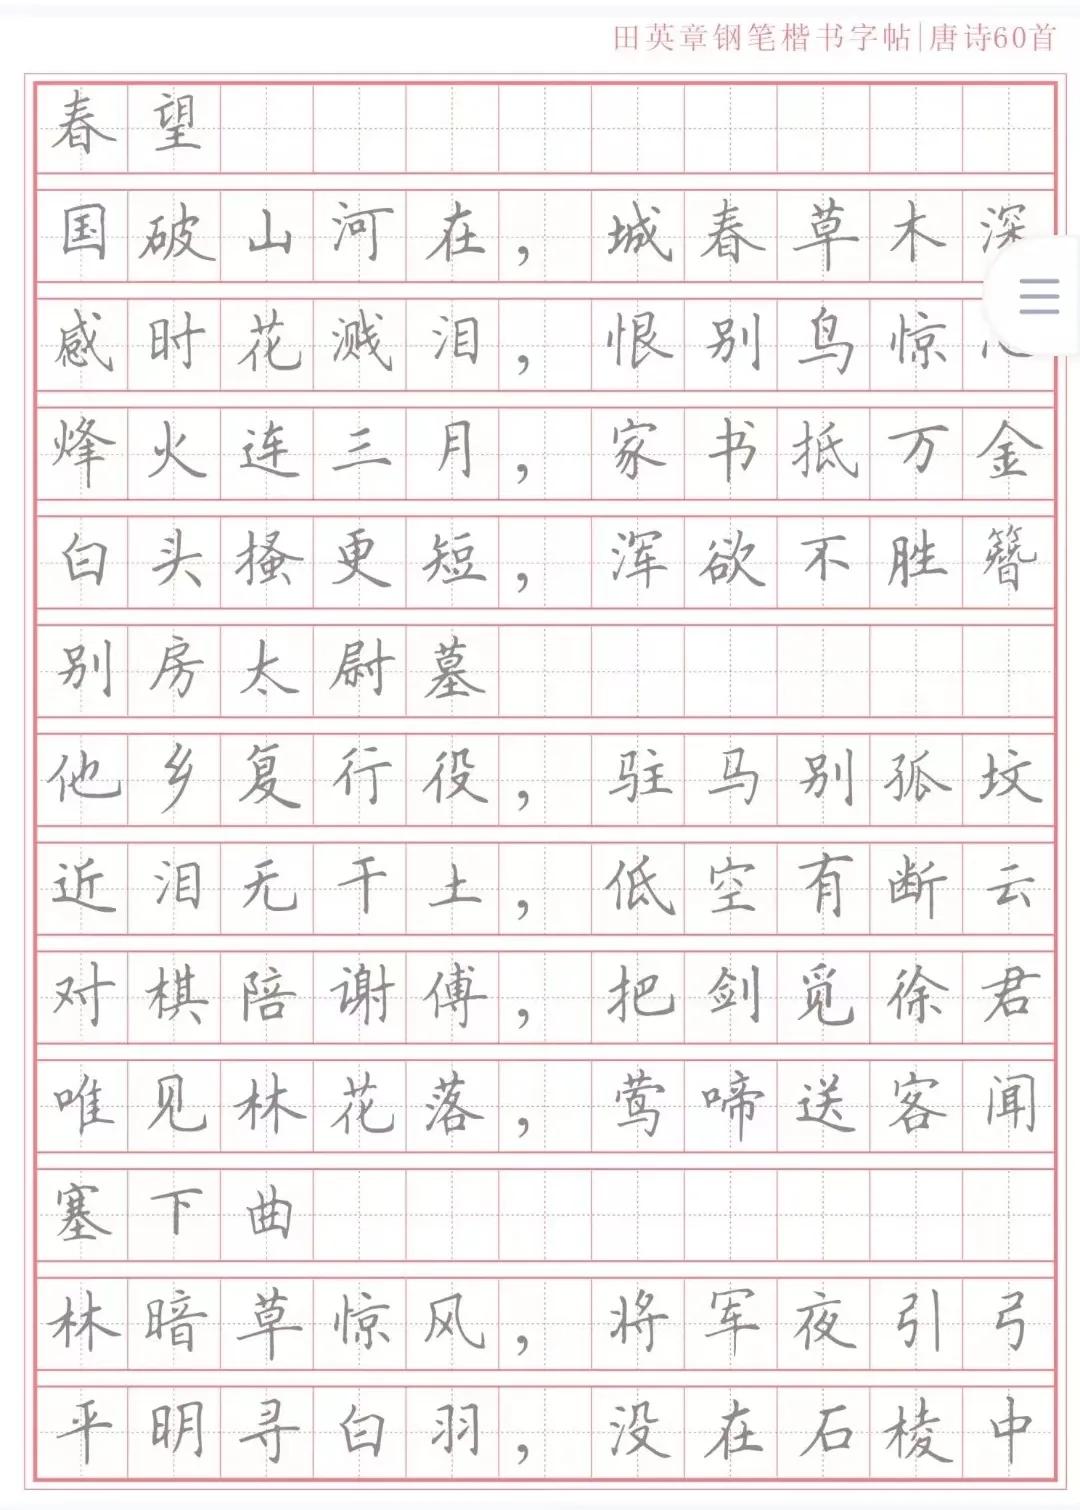 田英章钢笔楷书字帖|唐诗60首
春望
国破山河在，城春草木深
感时花溅泪，恨别鸟惊
烽火连三月，家书抵万金
白头搔更短，浑欲不胜簪
别房太尉墓
他乡复行役，驻马别孤坟
近泪无干土，低空有断云
对棋陪谢傅，把剑觅徐君
唯见林花落，莺啼送客闻
塞下曲
林暗草惊风，将军夜引弓
平明寻白羽，没在石棱中